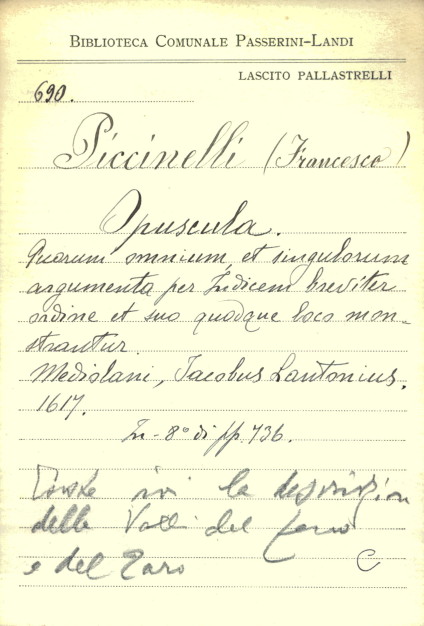 BIBLIOTECA COMUNALE PASSERINI-LANDI
LASCITO PALLASTRELLI
690.
Piccinelli (Francesco)
Opuscula.
Quorum omnium et singulorum
argumenta per Indicem breviter
ordine et suo quodque loco mon-
strantur.
Mediolani, Jacobus Lantonius,
1617.
In-8° di pp. 736.
ivi la descrizion
delle Valli del Ceno
e del Taro C